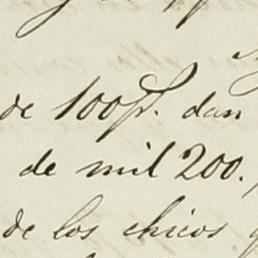 de 100p. dan
de mil 200.,
de los chicos